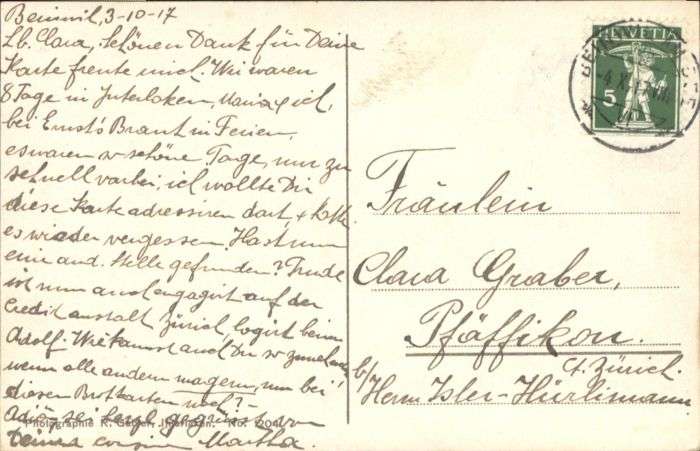 Beinwil, 3-10-17
Lb. Clara, Schönen Dank für Deine
Karte freute mich. Wir waren
8 Tage in Interlaken, Maria & ich,
bei Ernst's Braut in Ferien,
es waren so schöne Tage, nur zu
schnell vorbei, ich wollte Dir
diese Karte adressiren dort, &
es wieder vergessen. Hast nun
eine and. Stelle gefunden? Trude
ist nun auch engagirt auf der
Creditanstalt Zürich, logirt beim
Adolf. Wie kannst auch Du so zunehmen
wenn alle andern magern, nun bei
diesen Brotkarten noch?
Adio, sei herzl. gegrüsst von
Deiner Cousine Martha.
Photographie R. Gabler, Interlaken. No.
HELVETIA
5
BEINWIL
Fräulein
Clara Graber,
Pfäffikon.
Ct. Zürich.
b/ Herrn Isler-Hürlimann